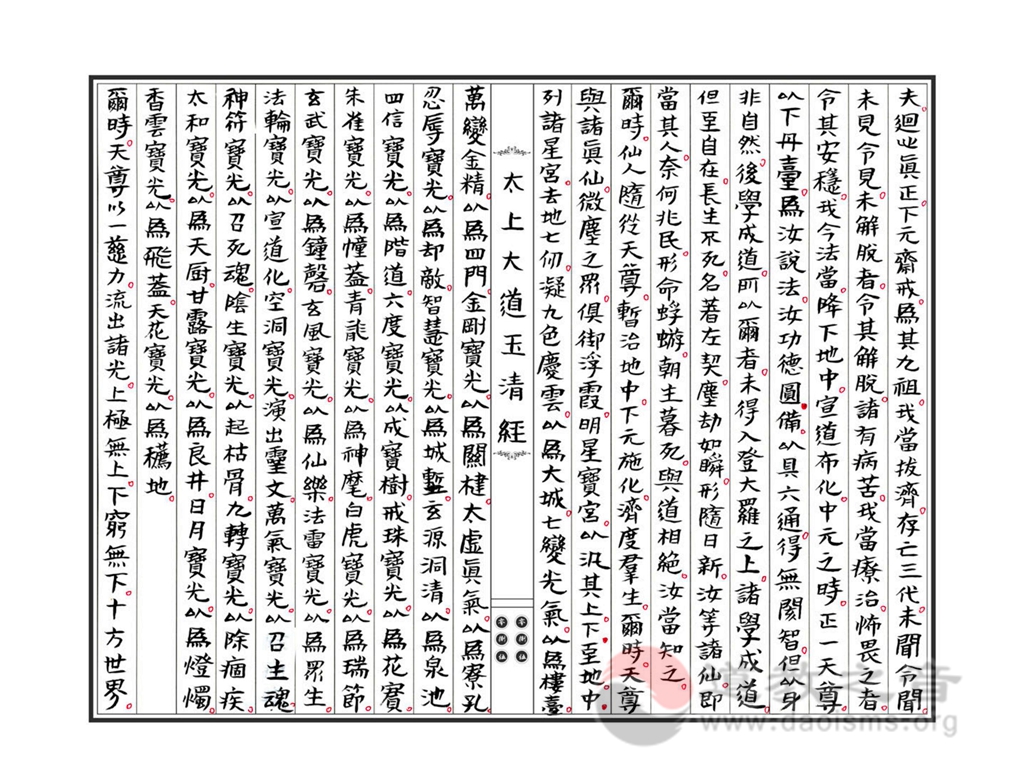 夫迴心眞正下元齋戒爲其九祖我當拔濟存亡三代未聞令聞
未見令見未解脫者令其解脫諸有病苦我當療治怖畏之者
令其安穩我今法當降下地中宣道布化中元之時正一天尊
以下丹臺爲汝說法汝功德圓備以具六通得無閡智但以身
非自然後學成道所以爾者未得入登大羅之上諸學成道
但至自在長生不死名著左契塵劫如瞬形隨日新汝等諸仙即
當其人奈何兆民形命蜉蝣朝生暮死與道相絶汝當知之
爾時仙人隨從天尊暫治地中下元施化濟度羣生爾時天尊
與諸眞仙微塵之眾俱御浮霞明星寶宮以汎其上下至地中
列諸星宮去地七仞凝九色慶雲以爲大城七變光氣以爲樓臺
太上大道玉清經
萬變金精以爲四門金剛寶光以爲關楗太虛眞氣以爲寮孔
忍辱寶光以爲却敵智慧寶光以爲城塹玄源洞清以爲泉池
四信寶光以爲階道六度寶光以成寶樹戒珠寶光以爲花寶
朱雀寶光以爲幢蓋青龍寶光以爲神麾白虎寶光以爲瑞節
玄武寶光以爲鐘磬玄風寶光以爲仙樂法雷寶光以爲眾生
法輪寶光以宣道化空洞寶光演出靈文萬氣寶光以召生魂
神符寶光以召死魂陰生寶光以起枯骨九轉寶光以除痼疾
太和寶光以爲天厨甘露寶光以爲良井日月寶光以爲燈燭
香雲寶光以爲飛蓋天花寶光以爲穠地
爾時天尊以一慈力流出諸光上極無上下窮無下十方世界
道教之音
www.daoisms.org